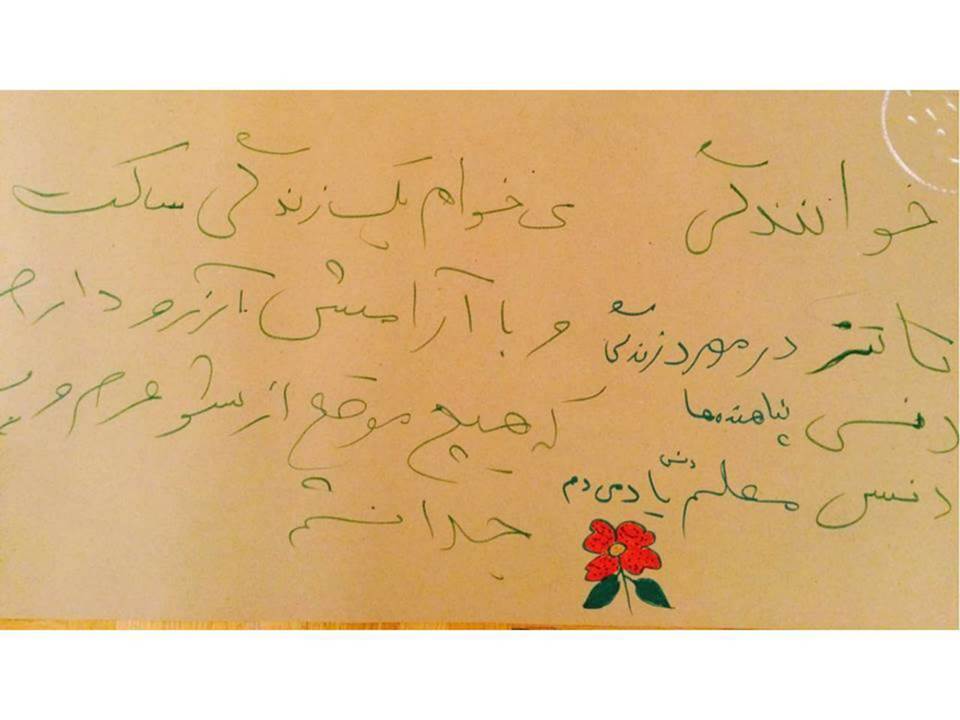 خوانندگی
تاتر در مورد زندگی
پناهنده ها
دنسی
دنس معلم دنس یاد می دم
می خوام یک زندگی ساکت
و با آرامش آرزو دارم
که هیچ موقع از شوهرم و
جدا نشم